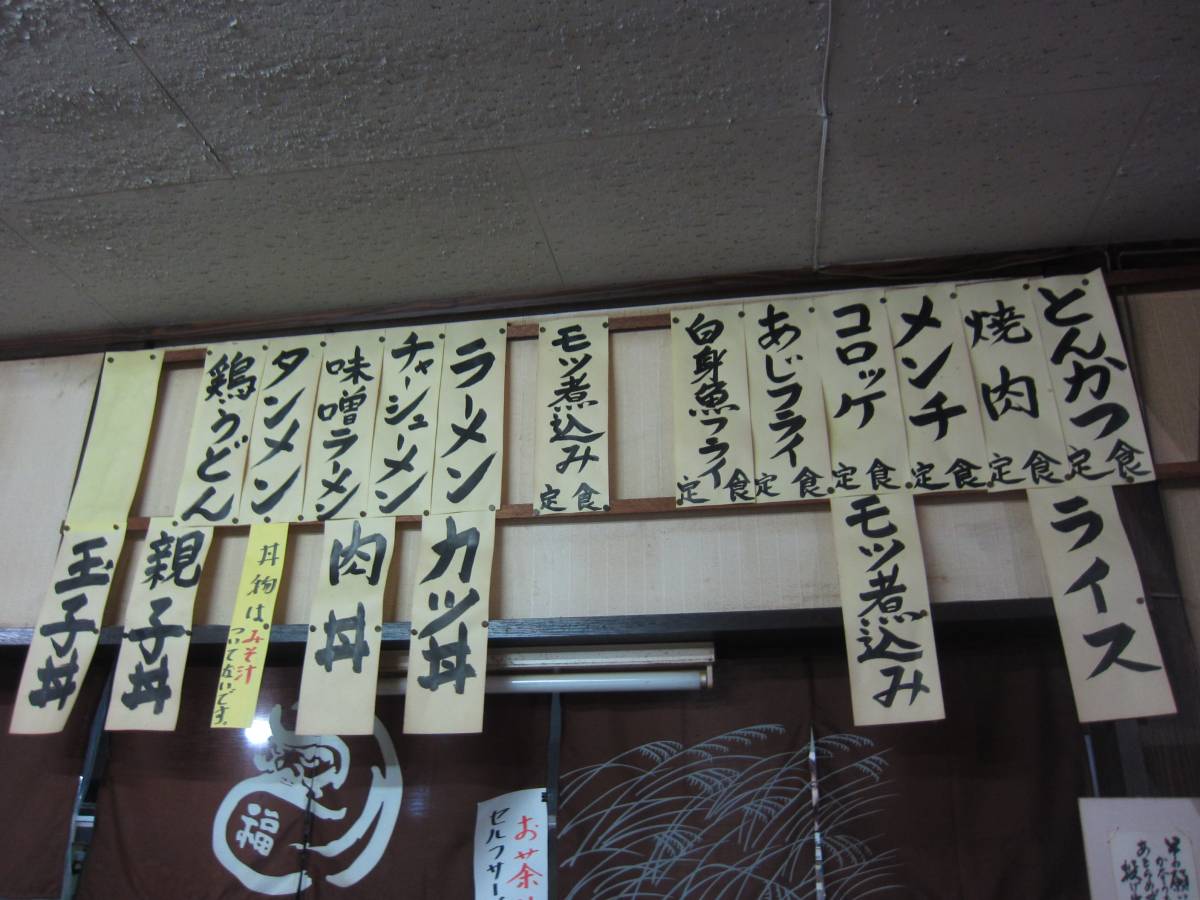 とんかつ定食
焼肉定食
メンチ定食
コロッケ定食
あじフライ定食
白身魚フライ定食
モツ煮込み定食
ラーメン
チャーシューメン
味噌ラーメン
タンメン
鶏うどん
ライス
モツ煮込み
カツ丼
肉丼
丼物は、みそ汁
ついてないです。
親子丼
玉子丼
福
お茶
セルフサー